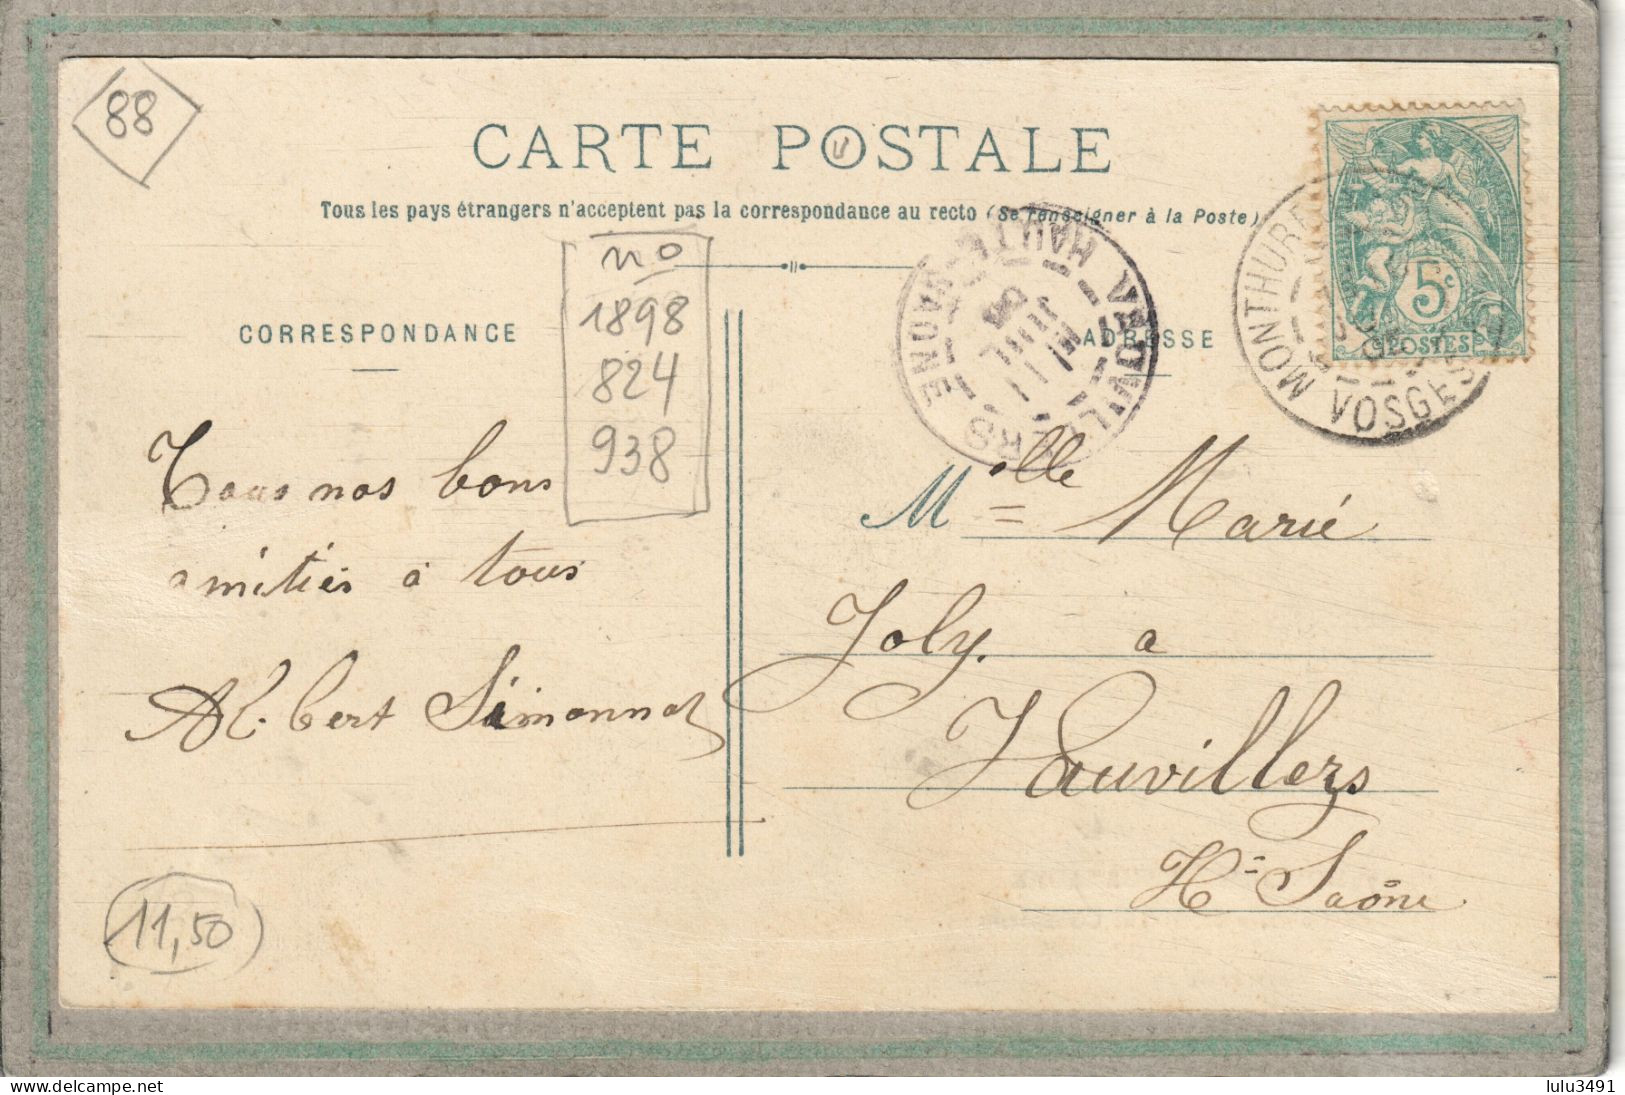 88
CARTE POSTALE
Tous les pays étrangers n'acceptent pas la correspondance au recto (Se renseigner à la Poste)
no
1898
824
938
CORRESPONDANCE
ADRESSE
VAUVILLERS
HAUTE-SAONE
MONTHUREUX
VOSGES
5c
POSTES
Tous nos bons
amitiés à tous
Albert Simonnot
Melle Marie
Joly. a
Vauvillers
Hte Saône
11,50
lulu3491